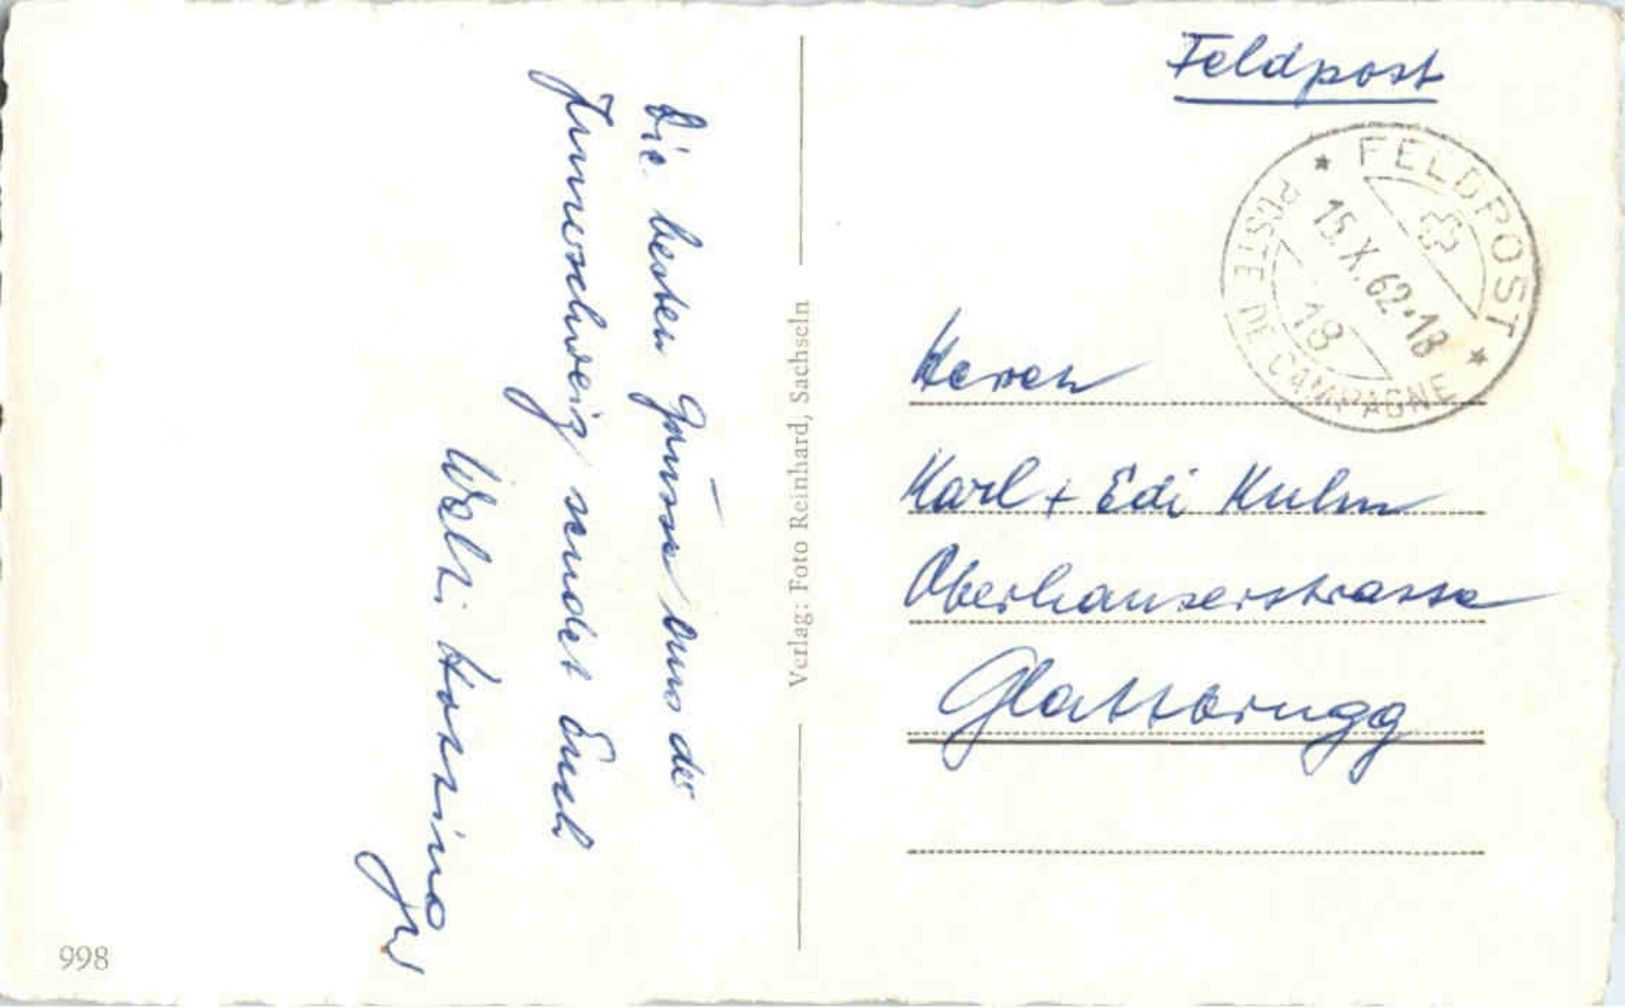 Die besten Grüsse aus der
Innerschweiz sendet Euch
Walti
Verlag: Foto Reinhard, Sachseln
998
Feldpost
FELDPOST
15.X.62-18
18
POSTE DE CAMPAGNE
Herren
Karl + Edi Kulm
Oberhauserstrasse
Glattbrugg